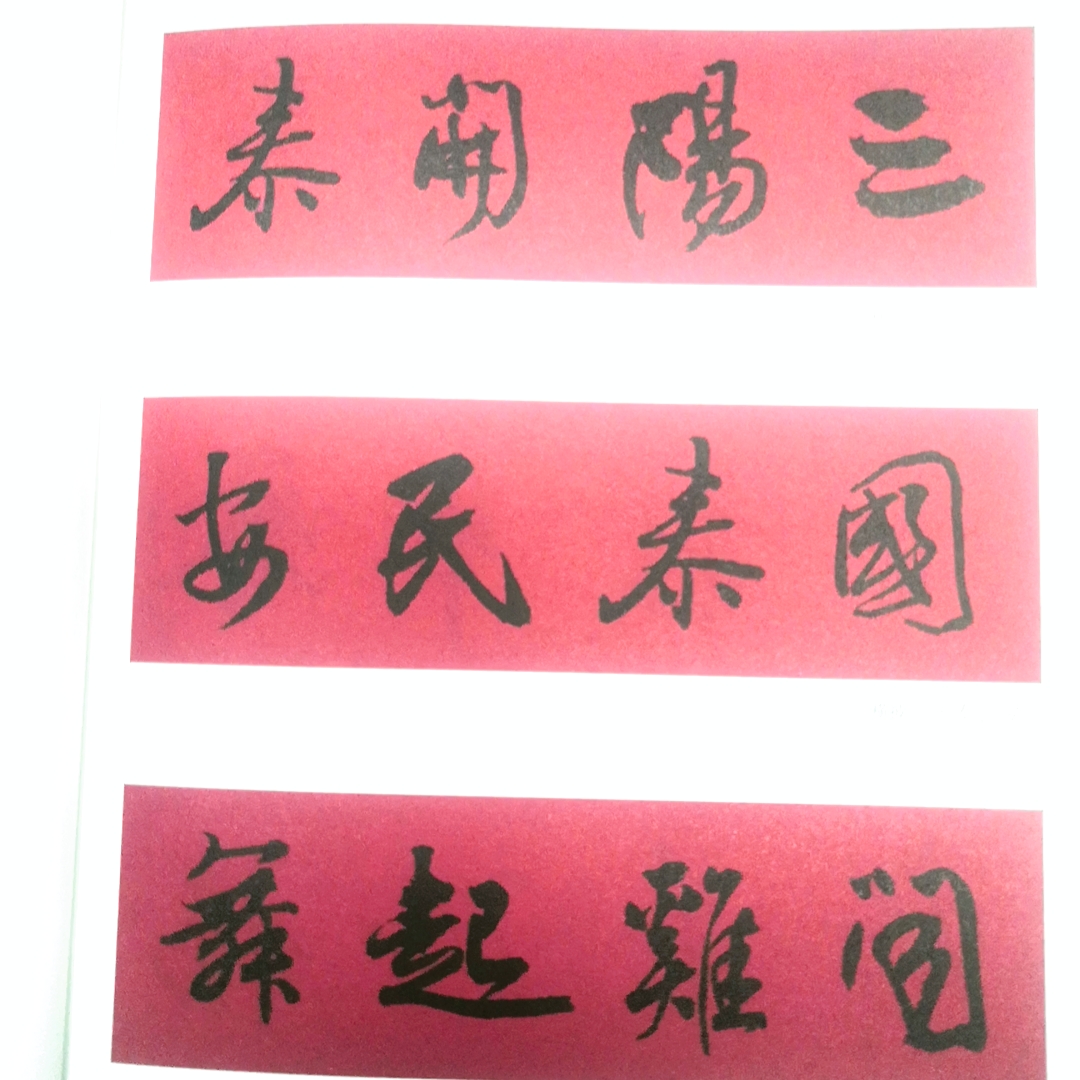 三陽開泰
國泰民安
聞雞起舞